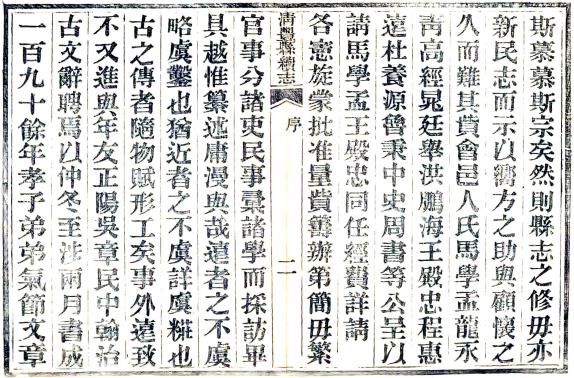 斯慕慕斯宗矣然則縣志之修毋亦
新民志而示以嚮方之助與顧懷之
久而難其貲會邑人氏馬學孟龍永
青高經晁廷舉洪鵬海王殿忠程惠
遠杜養源曾秉中史周書等公呈以
請馬學孟王殿忠同任經費詳請
各憲旋蒙批准量貲籌辦第簡毋繁
清豐縣續志
序
二
官事分諸吏民事彙諸學而採訪畢
具越惟纂述庸漫與哉遠者之不虞
略虞鑿也猶近者之不虞詳虞糅也
古之傳者隨物賦形工矣事外遠致
不又進與年友正陽吳章民中翰治
古文辭聘焉以仲冬至浹兩月書成
一百九十餘年孝子弟弟氣節文章